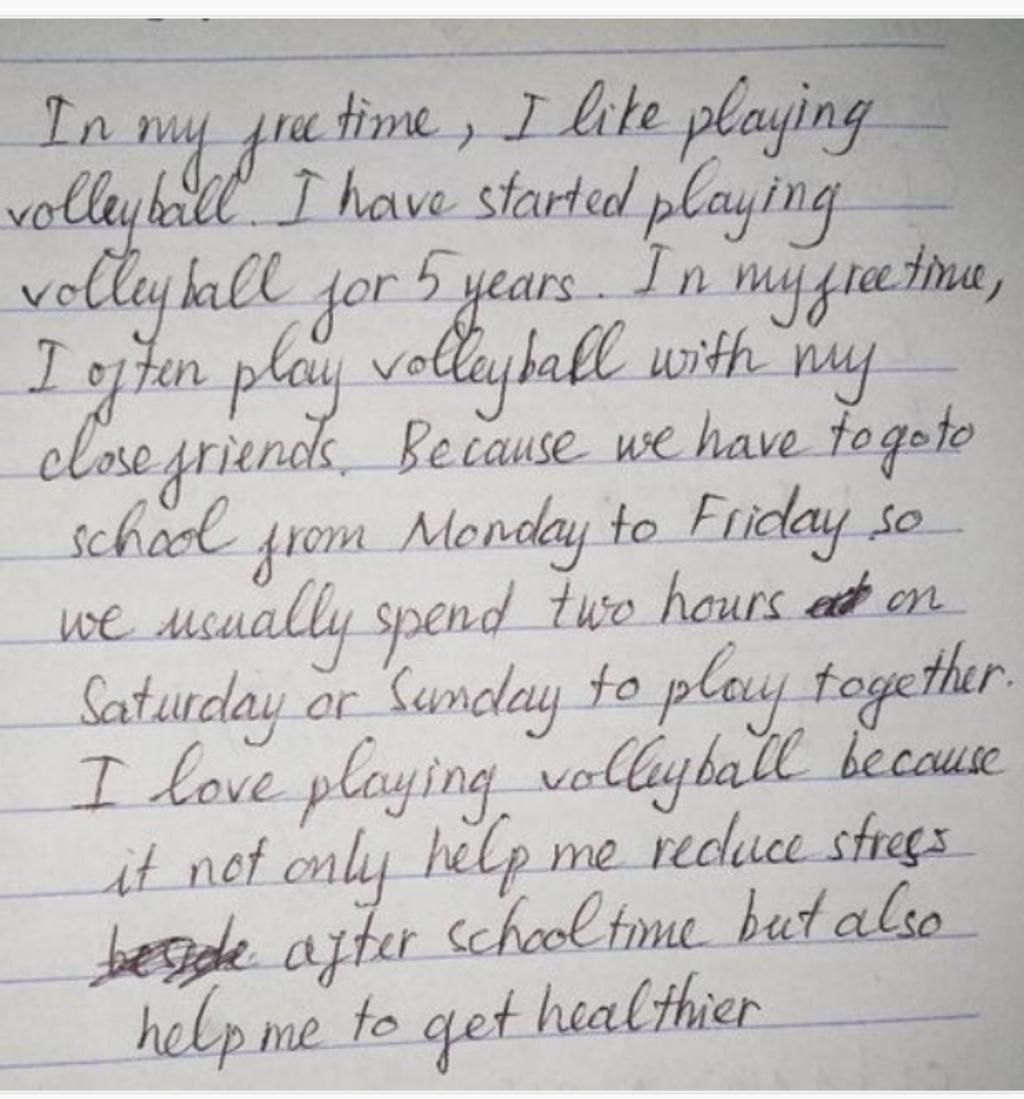 In my free time, I like playing
volleyball. I have started playing
volleyball for 5 years. In my free time,
I often play volleyball with my
close friends. Because we have to go to
school from Monday to Friday so
we usually spend two hours on
Saturday or Sunday to play together.
I love playing volleyball because
it not only help me reduce stress
after school time but also
help me to get healthier